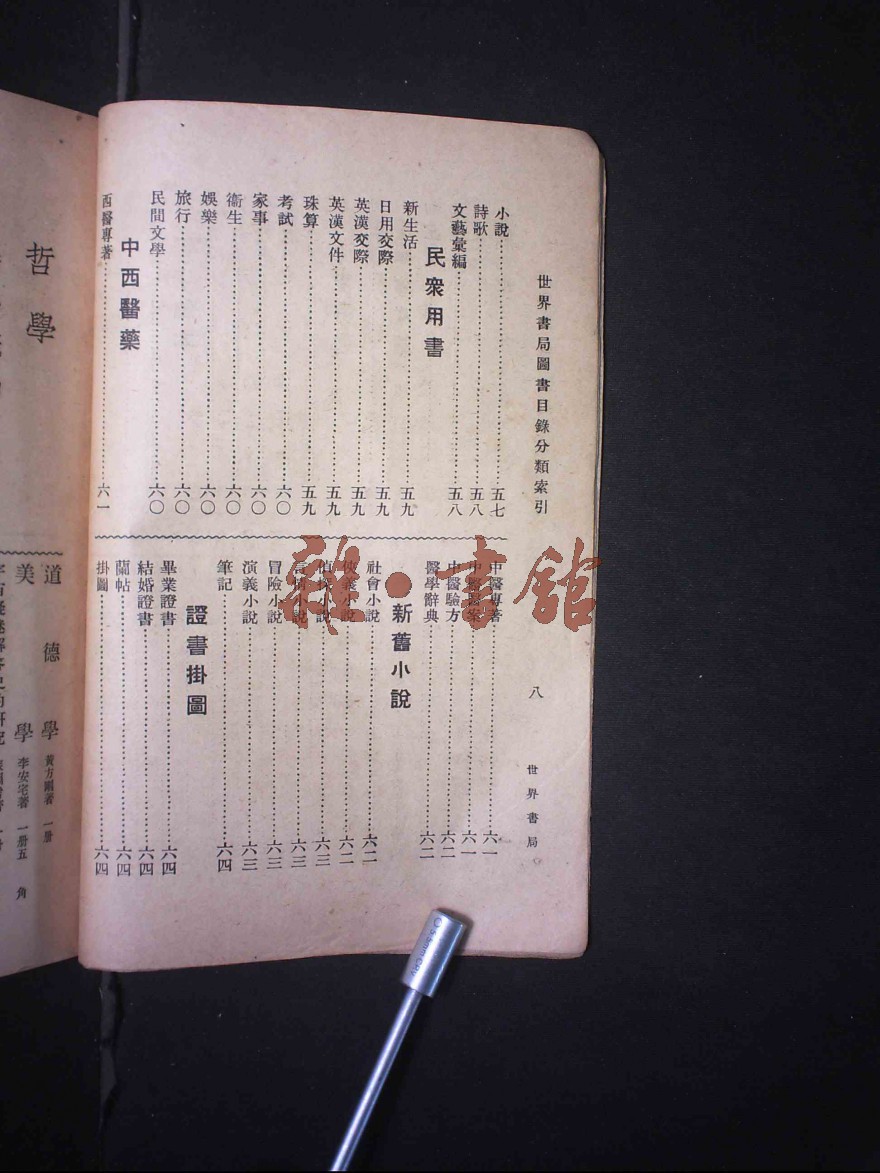 世界書局圖書目錄分類索引
八
世界書局
小說 五七
詩歌 五八
文藝彙編 五八
民衆用書
新生活 五九
日用交際 五九
英漢交際 五九
英漢文件 五九
珠算 五九
考試 六〇
家事 六〇
衞生 六〇
娛樂 六〇
旅行 六〇
民間文學 六〇
中西醫藥
西醫專著 六一
中醫專著 六一
中醫醫案 六一
中醫驗方 六二
醫學辭典 六二
新舊小說
社會小說 六二
俠義小說 六二
偵探小說 六三
言情小說 六三
冒險小說 六三
演義小說 六三
筆記 六四
證書掛圖
畢業證書 六四
結婚證書 六四
蘭帖 六四
掛圖 六四
雜·書館
哲學
道德學 黃方剛著 一册
美學 李安宅著 一册五角